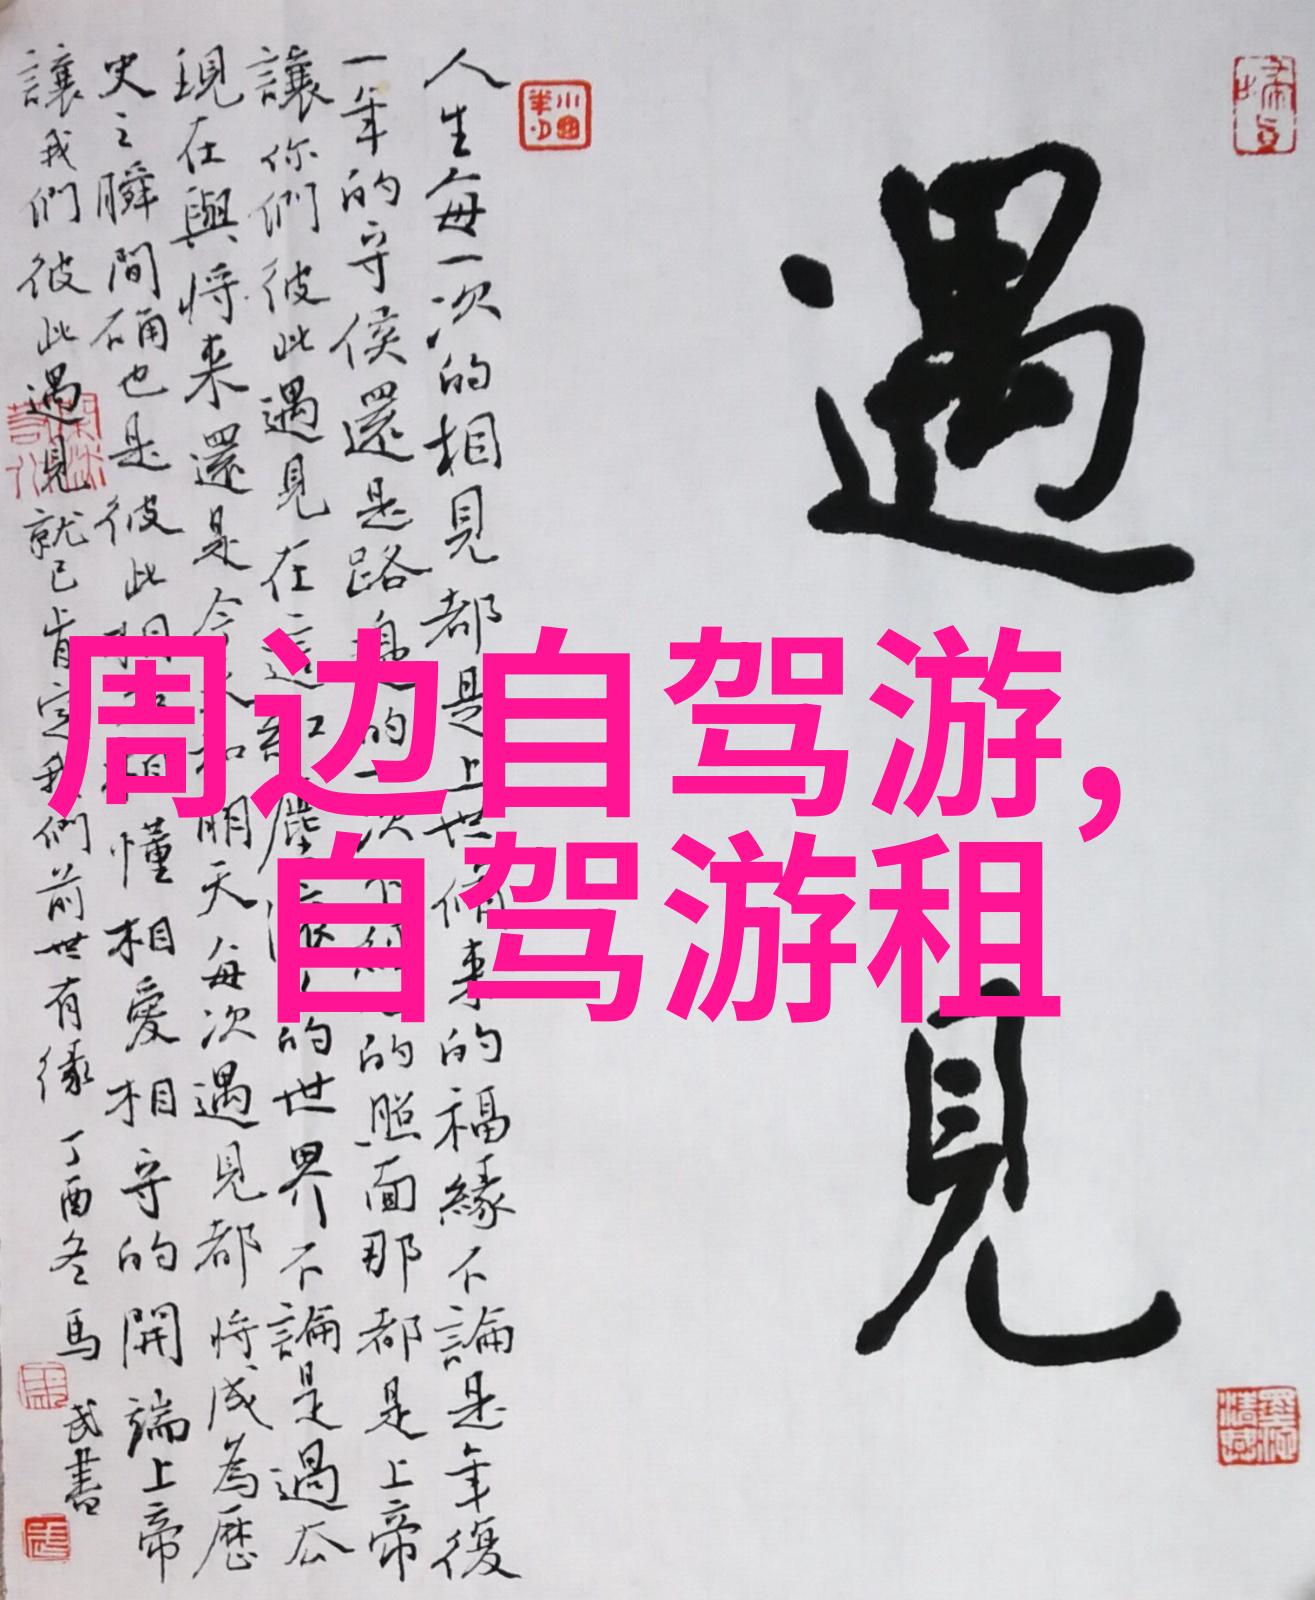 周边自驾游,
自驾游租
遇見
人生每一次的相見都是上世修来的福緣不論是年復
一年的守侯還是路過的一次不經意的照面那都是上帝
讓你們彼此遇見在這紅塵滾滾的世界不論是過去
現在與将来還是今天和明天每次遇見都将成為歷
史之瞬間硧也是彼此相知相懂相愛相守的開端上帝
讓我們彼此遇見就已肯定我們前世有缘 丁酉冬馬武書